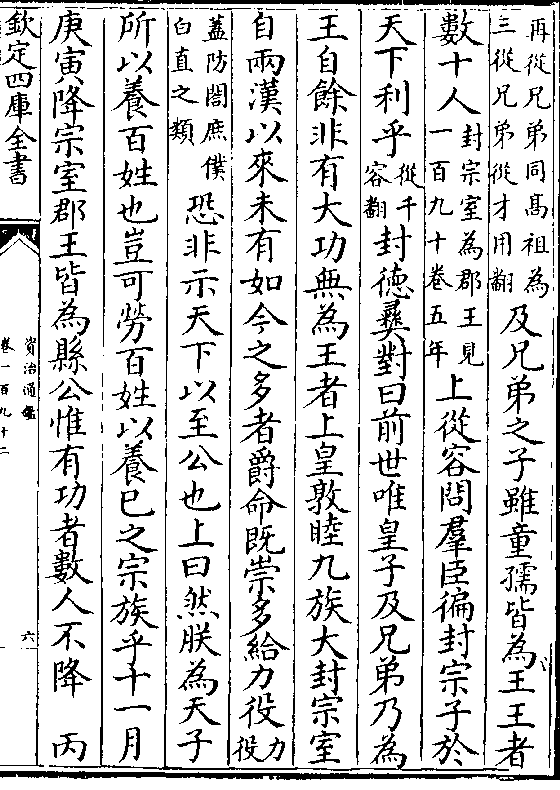 再從兄弟同髙祖為
三從兄弟從才用翻
及兄弟之子雖童孺皆為王王者
數十人
封宗室為郡王見
一百九十卷五年
上從容問羣臣徧封宗子於
天下利乎
從千
容翻
封德彞對曰前世唯皇子及兄弟乃為
王自餘非有大功無為王者上皇敦睦九族大封宗室
自兩漢以來未有如今之多者爵命既崇多給力役
力
役
蓋防閤庶僕
白直之類
恐非示天下以至公也上曰然朕為天子
所以養百姓也豈可勞百姓以養已之宗族乎十一月
庚寅降宗室郡王皆為縣公惟有功者數人不降　丙
欽定四庫全書
資治通鑑
卷一百九十二
六